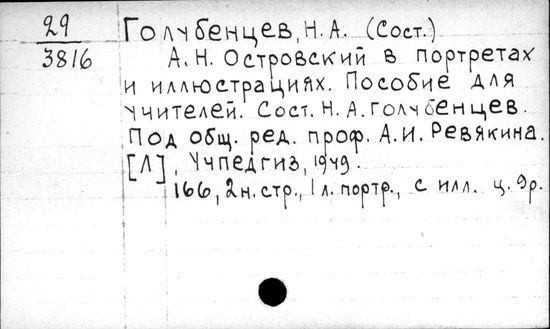 29
3816
Голубенцев, Н. А. (Сост.)
А. Н. Островский в портретах
и иллюстрациях. Пособие для
учителей. Сост. Н. А. Голубенцев.
Под общ. ред. проф. А. И. Ревякина.
[Л], Учпедгиз, 1949.
166, 2 н. стр., 1 л. портр., с илл. ц. 9р.